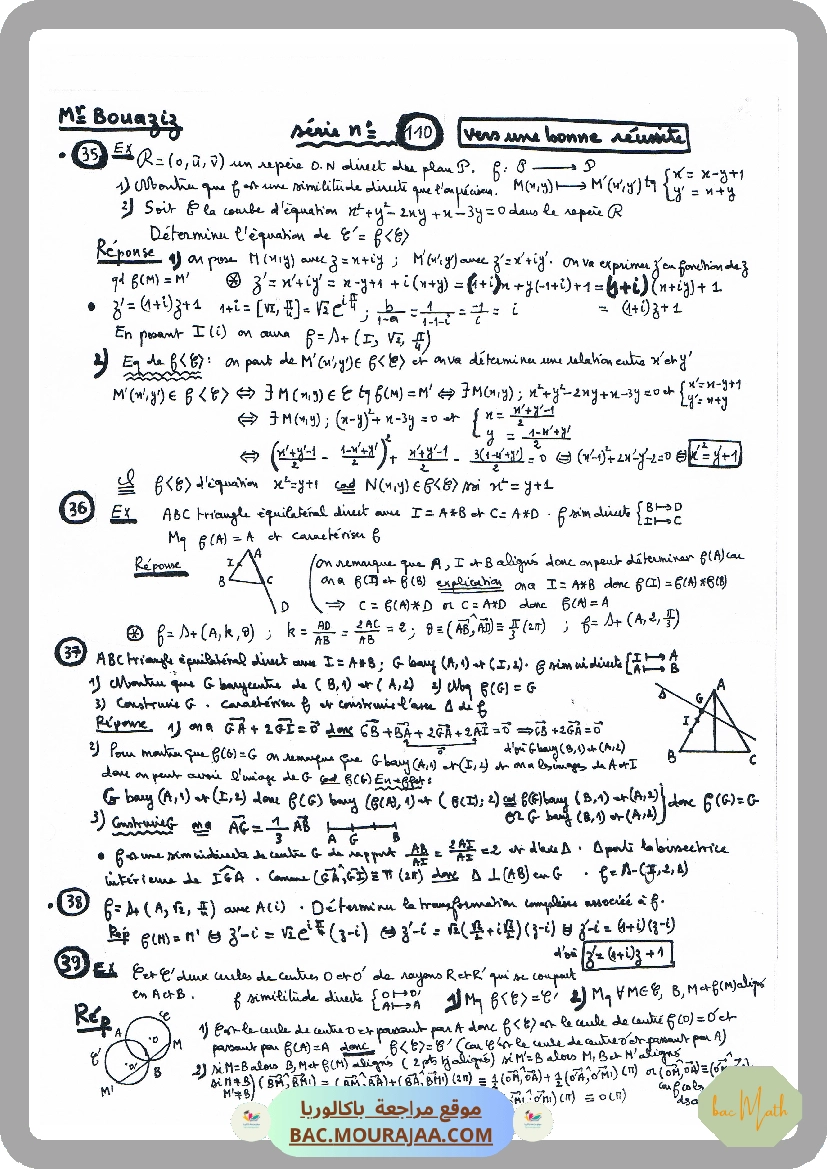 Mr Bouaziz
série n°= 110 vers une bonne réussite
35 Ex R=(o,u⃗,v⃗) un repère O.N direct du plan P. f: P ⟶ P
1) Montrer que f est une similitude directe que l'on précisera. M(x,y) ⟼ M'(x',y') tq { x' = x-y+1
y' = x+y
2) Soit C la courbe d'équation x²+y²-2xy+x-3y=0 dans le repère R
Déterminer l'équation de C' = f<C>
Réponse 1) on pose M(x,y) avec z=x+iy ; M'(x',y') avec z'=x'+iy'. on va exprimer z' en fonction de z
qd f(M)=M' ⊛ z'=x'+iy' = x-y+1+i(x+y) = (1+i)x+y(-1+i)+1 = (1+i)(x+iy)+1
• z'=(1+i)z+1 1+i=[√2,π/4]=√2e^{iπ/4} ; b/(1-a) = 1/(1-1-i) = -1/i = i = (1+i)z+1
En posant I(i) on aura f=S+(I,√2,π/4)
2) Eq de f<C>: on part de M'(x',y')∈ f<C> et on va déterminer une relation entre x' et y'
M'(x',y')∈ f<C> ⇔ ∃M(x,y)∈C tq f(M)=M' ⇔ ∃M(x,y); x²+y²-2xy+x-3y=0 et { x'=x-y+1
y'=x+y
⇔ ∃M(x,y); (x-y)²+x-3y=0 et { x = (x'+y'-1)/2
y = (1-x'+y')/2
⇔ ((x'+y'-1)/2 - (1-x'+y')/2)² + (x'+y'-1)/2 - 3(1-x'+y')/2 = 0 ⇔ (x'-1)²+2x'-y'-2=0 ⇔ x'²=y'+1
f<C> d'équation x²=y+1 cad N(x,y)∈f<C> ssi x²=y+1
36 Ex ABC triangle équilatéral direct avec I=A*B et C=A*D. f sim directe { B⟼D
I⟼C
Mq f(A)=A et caractériser f
Réponse on remarque que A, I et B alignés donc on peut déterminer f(A) car
on a f(I) et f(B) explication on a I=A*B donc f(I)=f(A)*f(B)
⟹ C=f(A)*D or C=A*D donc f(A)=A
A I B C D
⊛ f=S+(A,k,θ) ; k=AD/AB=2AC/AB=2 ; θ≡(AB⃗,AD⃗)≡π/3(2π) ; f=S+(A,2,π/3)
37 ABC triangle équilatéral direct avec I=A*B ; G bary (A,1) et (I,2). f sim indirecte { I⟼A
A⟼B
1) Montrer que G barycentre de (B,1) et (A,2) 2) Mq f(G)=G
3) Construire G. caractériser f et construis l'axe Δ de f
Réponse 1) on a GA⃗+2GI⃗=0⃗ donc GB⃗+BA⃗+2GA⃗+2AI⃗=0⃗ ⟹ GB⃗+2GA⃗=0⃗
d'où G bary (B,1) et (A,2)
Δ A G I B C
2) Pour montrer que f(G)=G on remarque que G bary (A,1) et (I,2) et on a les images de A et I
donc on peut avoir l'image de G cad f(G) En effet:
G bary (A,1) et (I,2) donc f(G) bary (f(A),1) et (f(I);2) cad f(G) bary (B,1) et (A,2) } donc f(G)=G
or G bary (B,1) et (A,2)
3) Construire G on a AG⃗=1/3 AB⃗ A G B
• f est une sim indirecte de centre G de rapport AB/AI = 2AI/AI = 2 et d'axe Δ. Δ porte la bissectrice
intérieure de IGA. Comme (GA⃗,GI⃗)≡π(2π) donc Δ⊥(AB) en G
38 f=S+(A,√2,π/4) avec A(i). Déterminer la transformation complexe associée à f.
Rép f(M)=M' ⇔ z'-i=√2e^{iπ/4}(z-i) ⇔ z'-i=√2(√2/2+i√2/2)(z-i) ⇔ z'-i=(1+i)(z-i)
d'où z'=(1+i)z+1
39 Ex C et C' deux cercles de centres O et O' de rayons R et R' qui se coupent
en A et B. f similitude directe { O⟼O'
A⟼A 1) Mq f<C>=C' 2) Mq ∀M∈C, B, M et f(M) aligs
Rép 1) C est le cercle de centre O et passant par A donc f<C> est le cercle de centre f(O)=O' et
passant par f(A)=A donc f<C>=C' (car C' est le cercle de centre O' et passant par A)
2) si M=B alors B, M et f(M) alignés (2 pts tj alignés) si M'=B alors M, B et M' alignés
A C O M B C' O' M'
موقع مراجعة باكالوريا
BAC.MOURAJAA.COM
bac Math